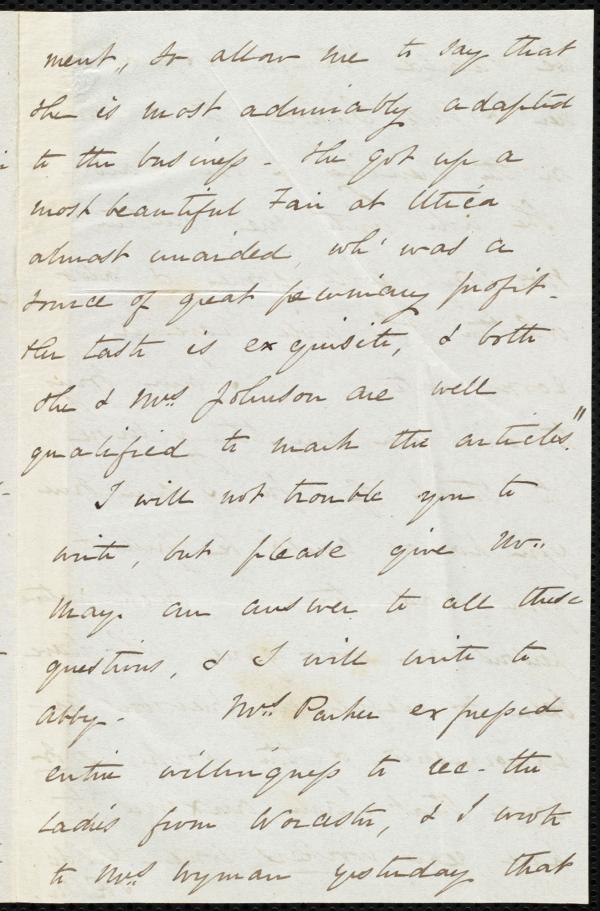 ment, & allow me to say that
she is most admirably adapted
to the business - She got up a
most beautiful Fair at Utica
almost unaided, wh' was a
source of great pecuniary profit.
Her taste is exquisite, & both
she & Mrs Johnson are well
qualified to mark the articles."
I will not trouble you to
write, but please give Mr.
May. an answer to all these
questions, & I will write to
Abby. Mrs Parker expressed
entire willingness to rec. the
Ladies from Worcester, & I wrote
to Mrs Wyman yesterday that